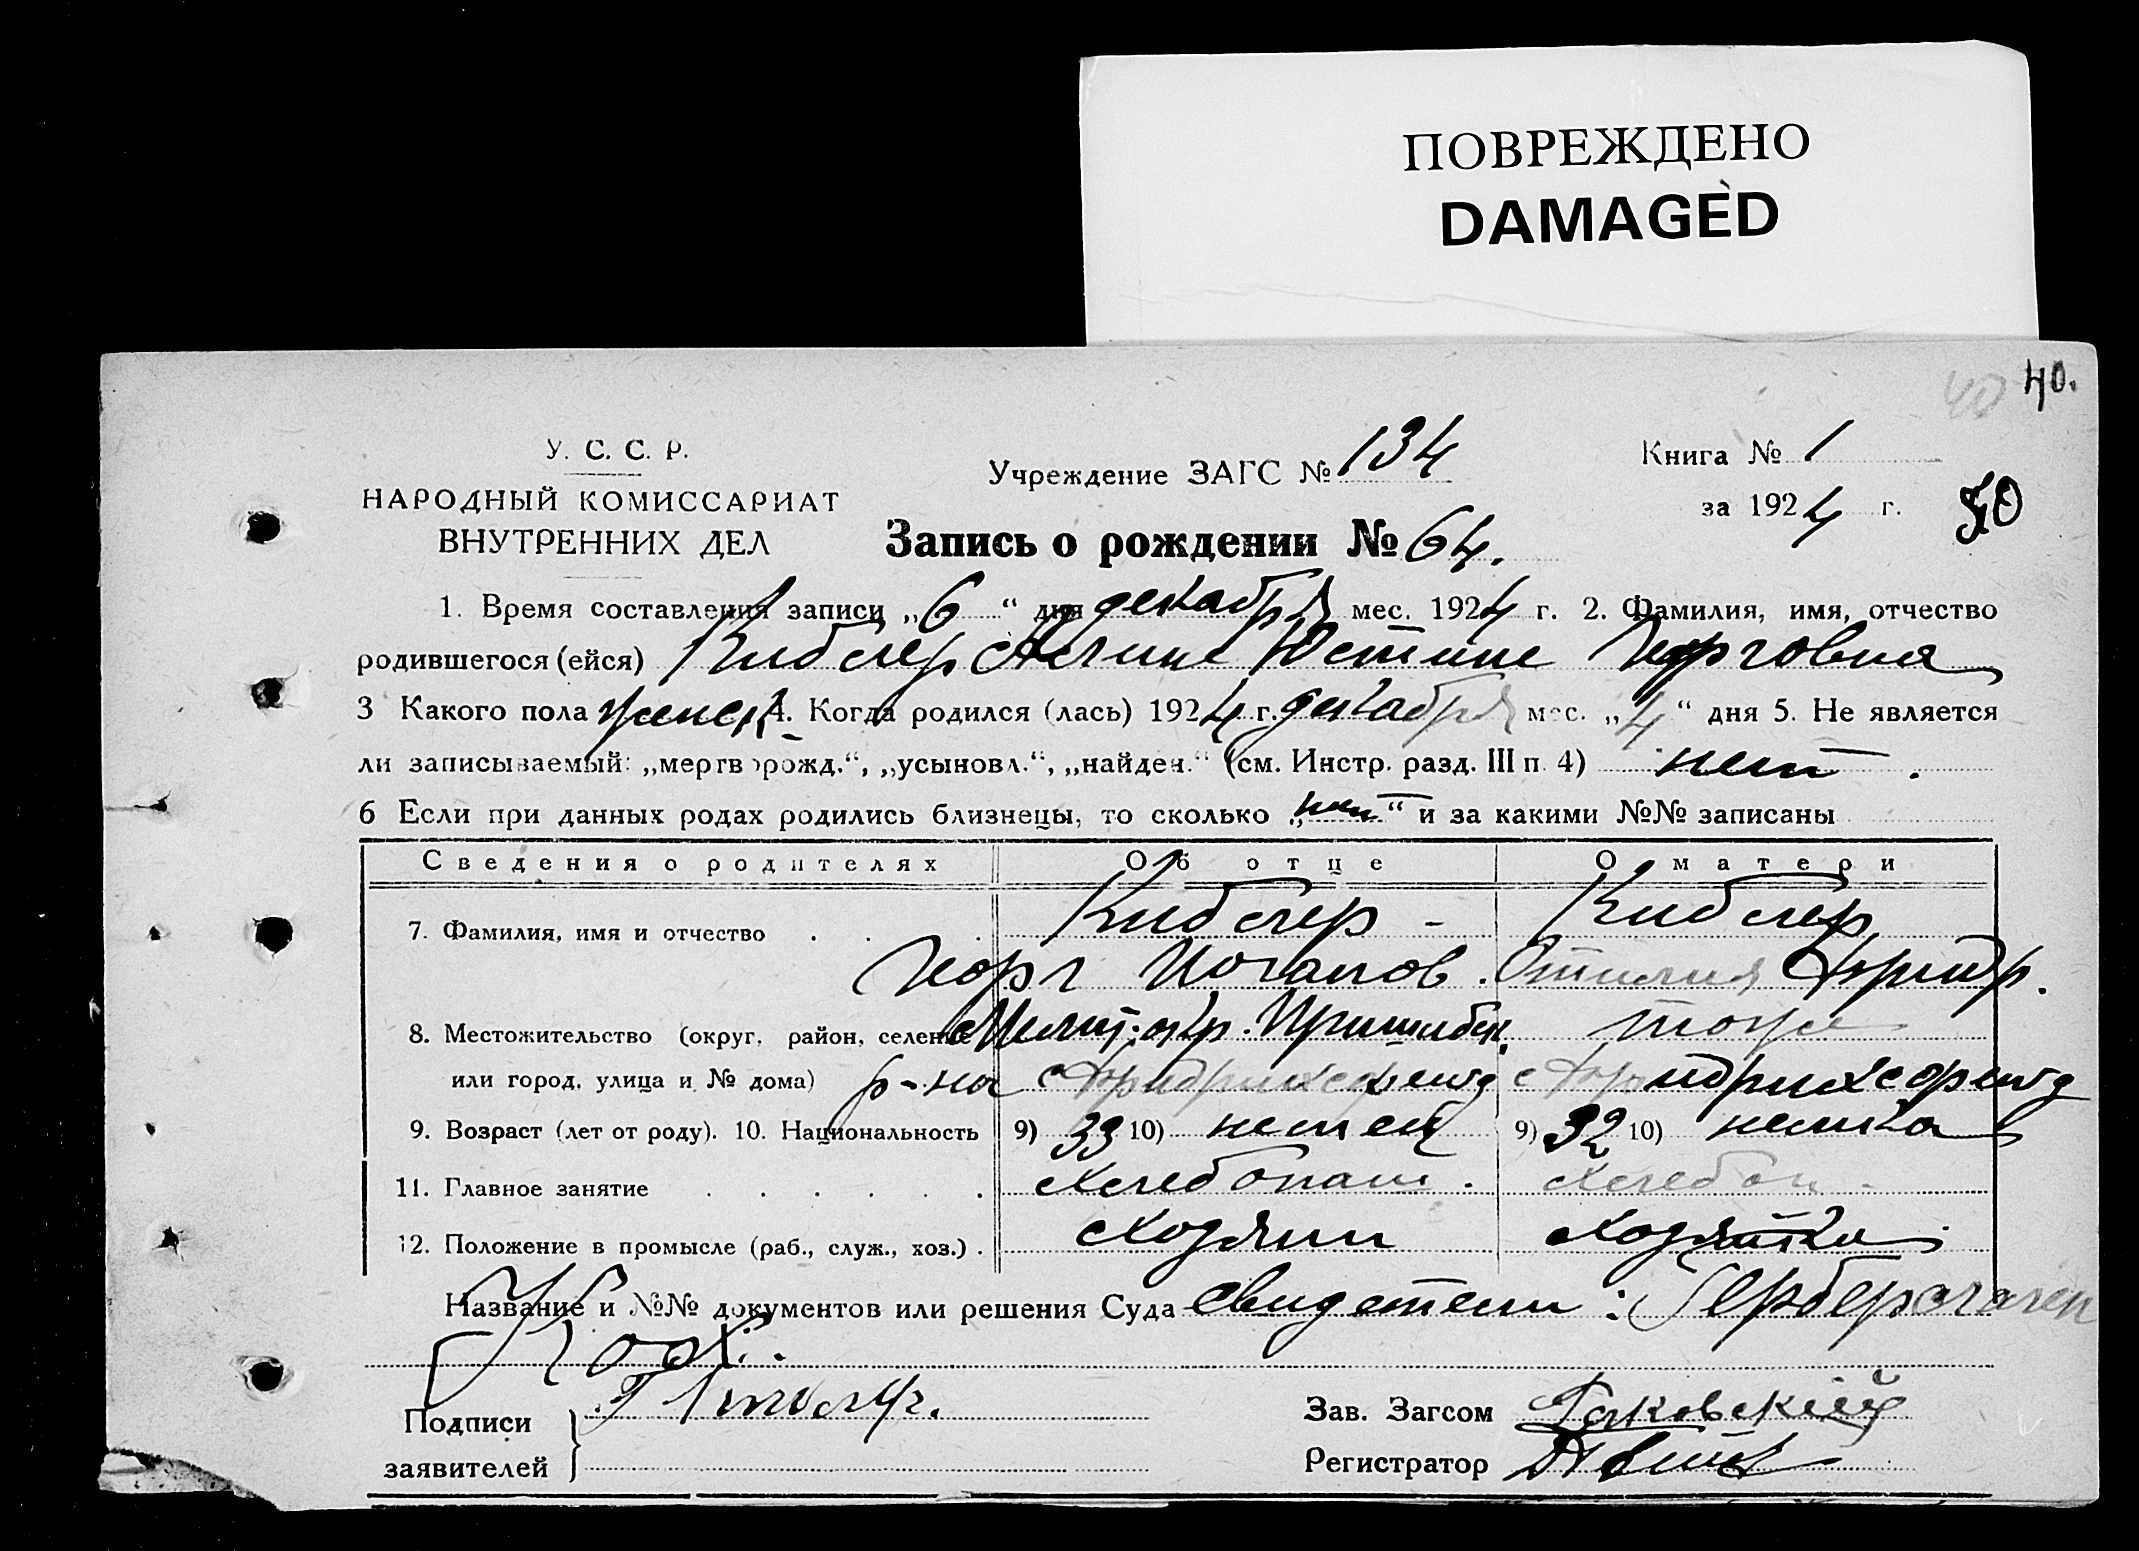 ПОВРЕЖДЕНО
DAMAGED
40 40.
У. С. С. Р.
НАРОДНЫЙ КОМИССАРИАТ
ВНУТРЕННИХ ДЕЛ
Учреждение ЗАГС № 134
Книга № 1
за 1924 г.
50
Запись о рождении № 64.
1. Время составления записи „6“ дня декабря мес. 1924 г. 2. Фамилия, имя, отчество
родившегося (ейся) Киблер Юстине Иорговна
3 Какого пола женск. 4. Когда родился (лась) 1924 г. декабря мес. „4“ дня 5. Не является
ли записываемый: „мертворожд.“, „усыновл.“, „найден.“ (см. Инстр. разд. III п. 4) нет.
6 Если при данных родах родились близнецы, то сколько „нет“ и за какими №№ записаны
Сведения о родителях Об отце О матери
7. Фамилия, имя и отчество . . . Киблер - Киблер
Иорг Иоганов. Отилия Фридр.
8. Местожительство (округ, район, селение Мелит. окр. Пришибск. тоже
или город, улица и № дома) р-на Фридрихсфельд Фридрихсфельд
9. Возраст (лет от роду). 10. Национальность 9) 33 10) немец 9) 32 10) немка
11. Главное занятие . . . . . . Хлебопаш. Хлебоп.
12. Положение в промысле (раб., служ., хоз.) . Хозяин Хозяйка
Название и №№ документов или решения Суда Свидетели:
Кох.
Подписи
заявителей
Зав. Загсом
Регистратор